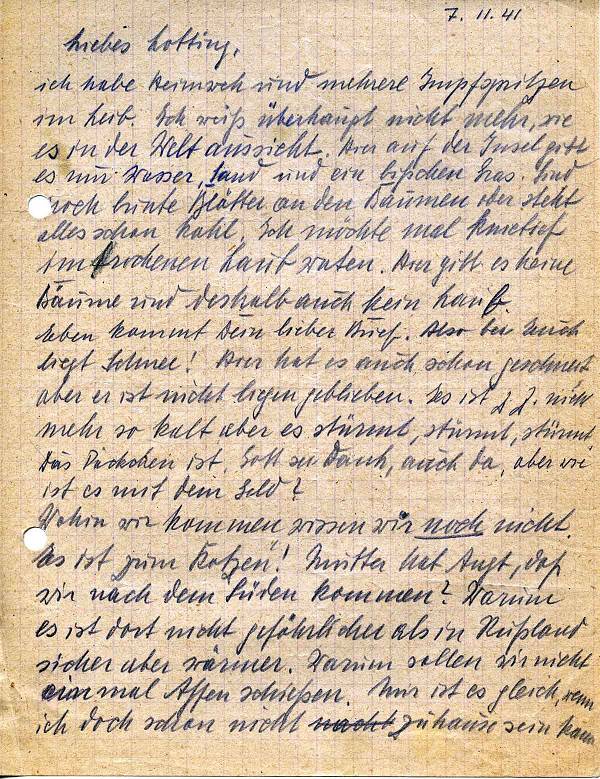 7. 11. 41
Liebes Lotting,
ich habe Heimweh und mehrere Impfspritzen
im Leib. Ich weiß überhaupt nicht mehr, wie
es in der Welt aussieht. Hier auf der Insel gibt
es nur Wasser, Sand und ein bißchen Gras. Sind
noch bunte Blätter an den Bäumen oder steht
alles schon kahl. Ich möchte mal knietief
im trockenen Laub waten. Hier gibt es keine
Bäume und deshalb auch kein Laub.
Eben kommt Dein lieber Brief. Also bei Euch
liegt Schnee! Hier hat es auch schon geschneit
aber er ist nicht liegen geblieben. Es ist z. Z. nicht
mehr so kalt aber es stürmt, stürmt, stürmt
Das Päckchen ist, Gott sei Dank, auch da, aber wie
ist es mit dem Geld?
Wohin wir kommen wissen wir noch nicht.
Es ist zum Kotzen"! Mutter hat Angt, daß
wir nach dem Süden kommen? Warum
es ist dort nicht gefährlicher als in Rußland
sicher aber wärmer. Warum sollen wir nicht
einmal Affen schießen. Mir ist es gleich, wenn
ich doch schon nicht nacht zuhause sein kann